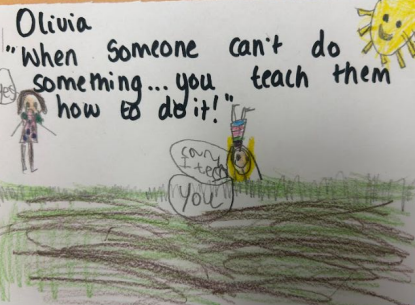 Olivia
"When someone can't do
something...you teach them
how to do it!"
YOU